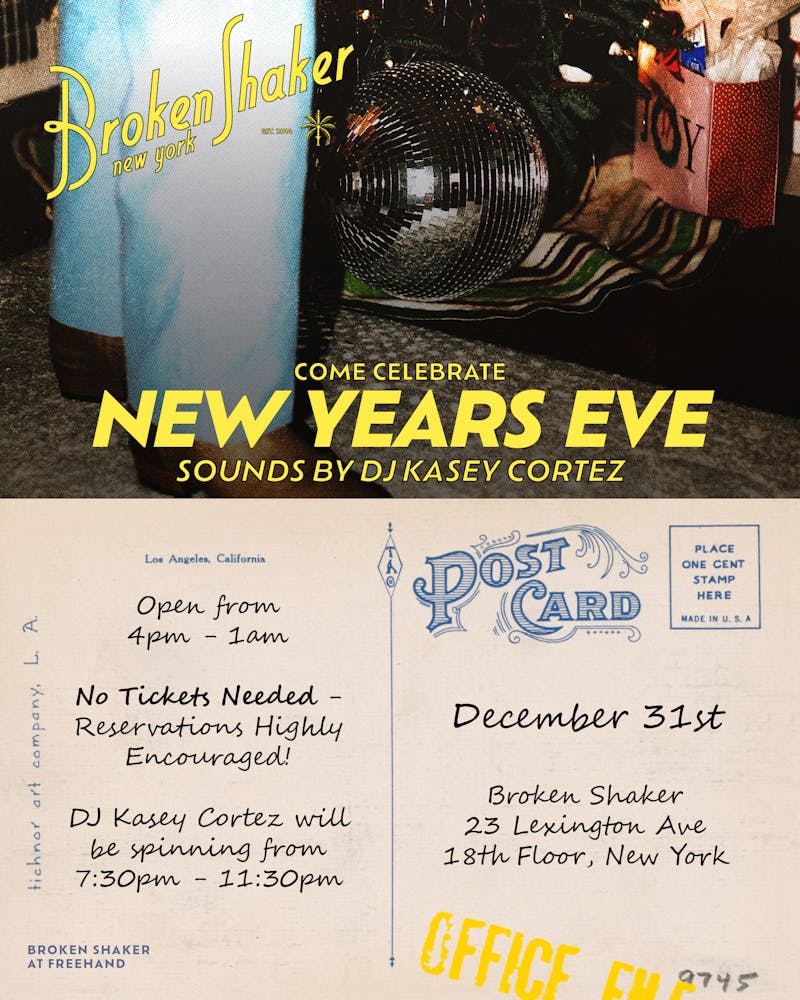 Broken Shaker
new york
EST. 2016
JOY
COME CELEBRATE
NEW YEARS EVE
SOUNDS BY DJ KASEY CORTEZ
Los Angeles, California
Open from
4pm - 1am
No Tickets Needed -
Reservations Highly
Encouraged!
DJ Kasey Cortez will
be spinning from
7:30pm - 11:30pm
tichnor art company, L. A.
BROKEN SHAKER
AT FREEHAND
POST
CARD
PLACE
ONE CENT
STAMP
HERE
MADE IN U. S. A
December 31st
Broken Shaker
23 Lexington Ave
18th Floor, New York
OFFICE
9745